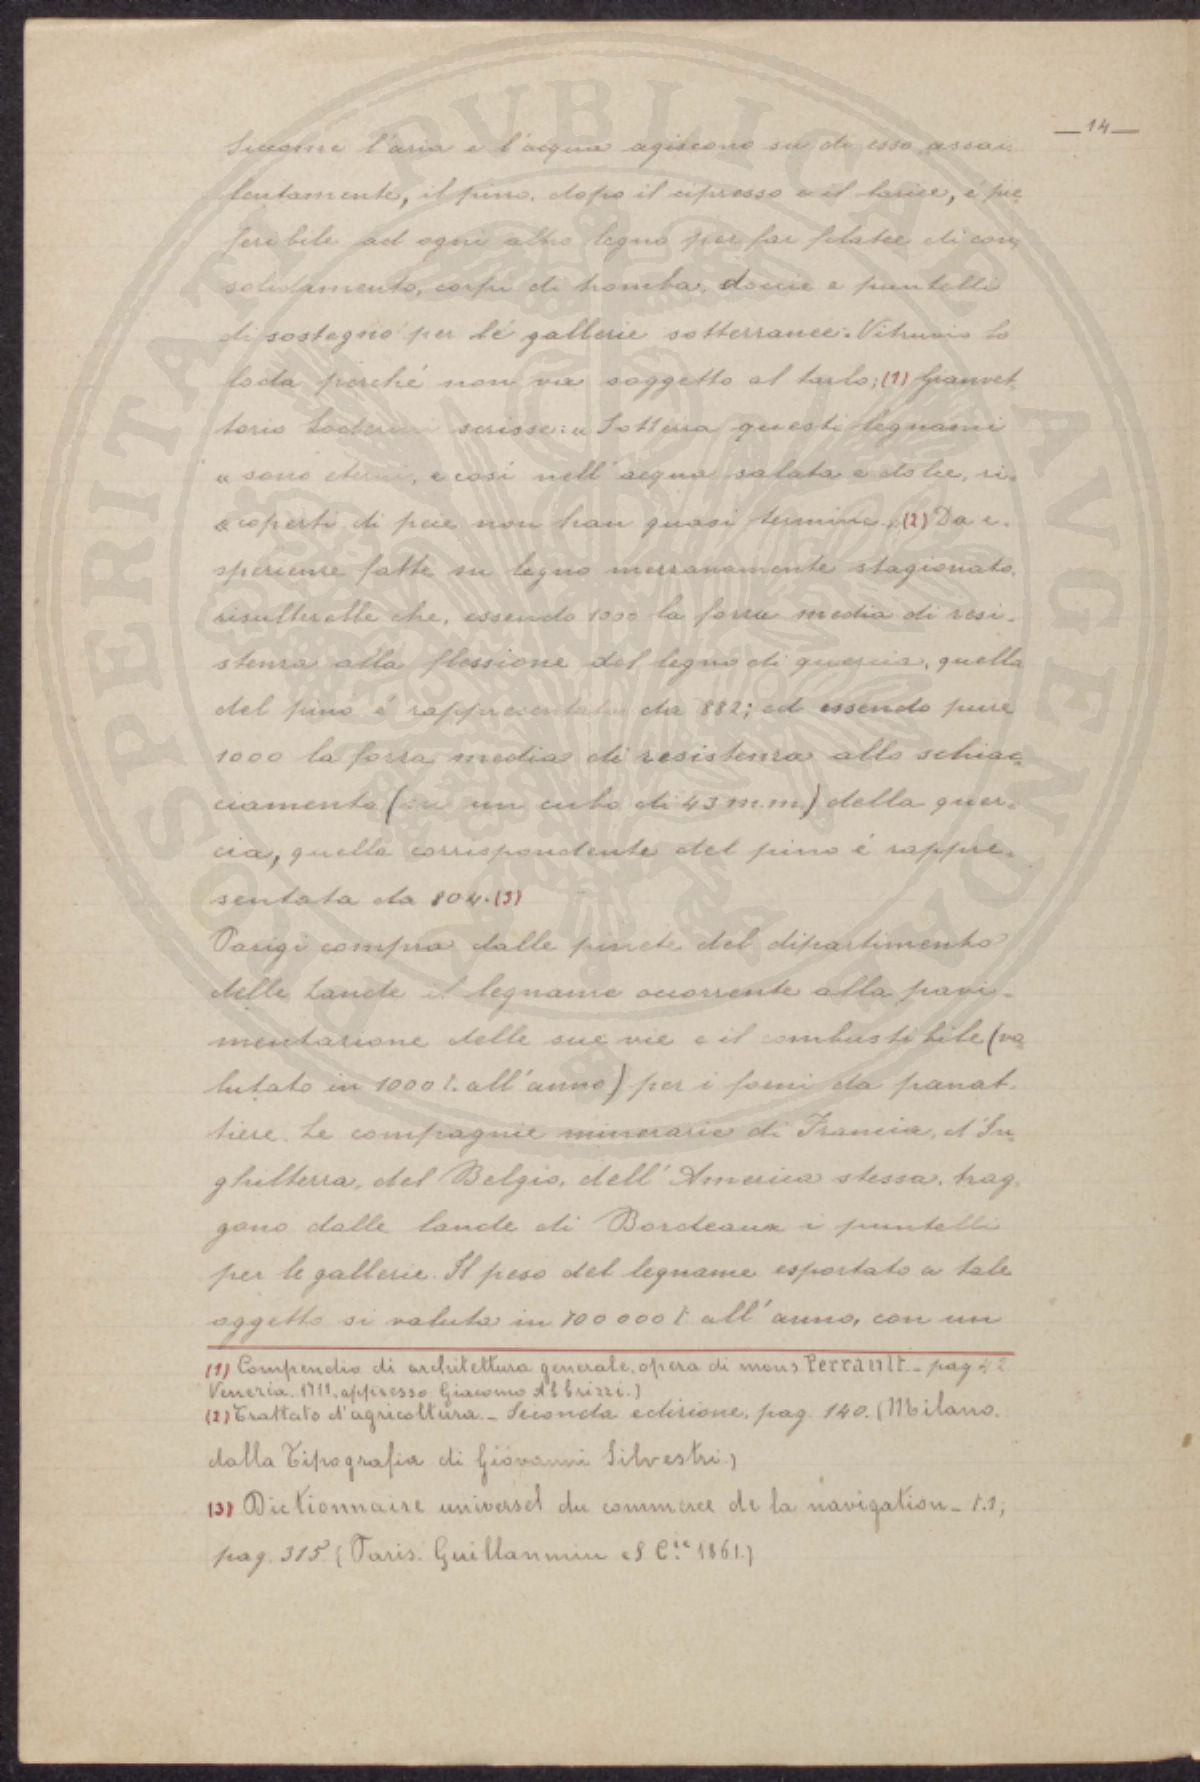 — 14 —
Siccome l'aria e l'acqua agiscono su di esso assai
lentamente, il pino, dopo il cipresso e il larice, é pre
feribile ad ogni altro legno per far filatee di con,
solidamento, corpi di tromba, doccie e puntelli
di sostegno per lé gallerie sotterranee. Vitruvio lo
loda perché non va soggetto al tarlo; (1) Gianvet,
torio Soderini scrisse: « Sotterra questi legnami
« sono eterni, e cosí nell'acqua salata e dolce, ri-
« coperti di pece non han quasi termine. (2) Da e-
sperienze fatte su legno mezzanamente stagionato,
risulterebbe che, essendo 1000 la forza media di resi-
stenza alla flessione del legno di quercia, quella
del pino é rappresentata da 882; ed essendo pure
1000 la forza media di resistenza allo schiac,
ciamento (su un cubo di 43 m.m.) della quer-
cia, quella corrispondente del pino é rappre-
sentata da 804. (3)
Parigi compra dalle pinete del dipartimento
delle Lande il legname occorrente alla pavi-
mentazione delle sue vie e il combustibile (va,
lutato in 1000 t. all'anno) per i forni da panat-
tiere. Le compagnie minerarie di Francia, d'In,
ghilterra, del Belgio, dell'America stessa, trag,
gono dalle lande di Bordeaux i puntelli
per le gallerie. Il peso del legname esportato a tale
oggetto si valuta in 700 000 t all'anno, con un
(1) Compendio di architettura generale, opera di mons Perrault - pag 42
Venezia. 1711, appresso Giacomo Albrizzi.)
(2) Trattato d'agricoltura. - Seconda edizione, pag. 140. (Milano.
dalla Tipografia di Giovanni Silvestri.)
(3) Dictionnaire universel du commerce de la navigation - t.1;
pag. 315. (Paris. Guillaumin et C.ie 1861.)
PROSPERITATI PVBLICAE AVGENDAE